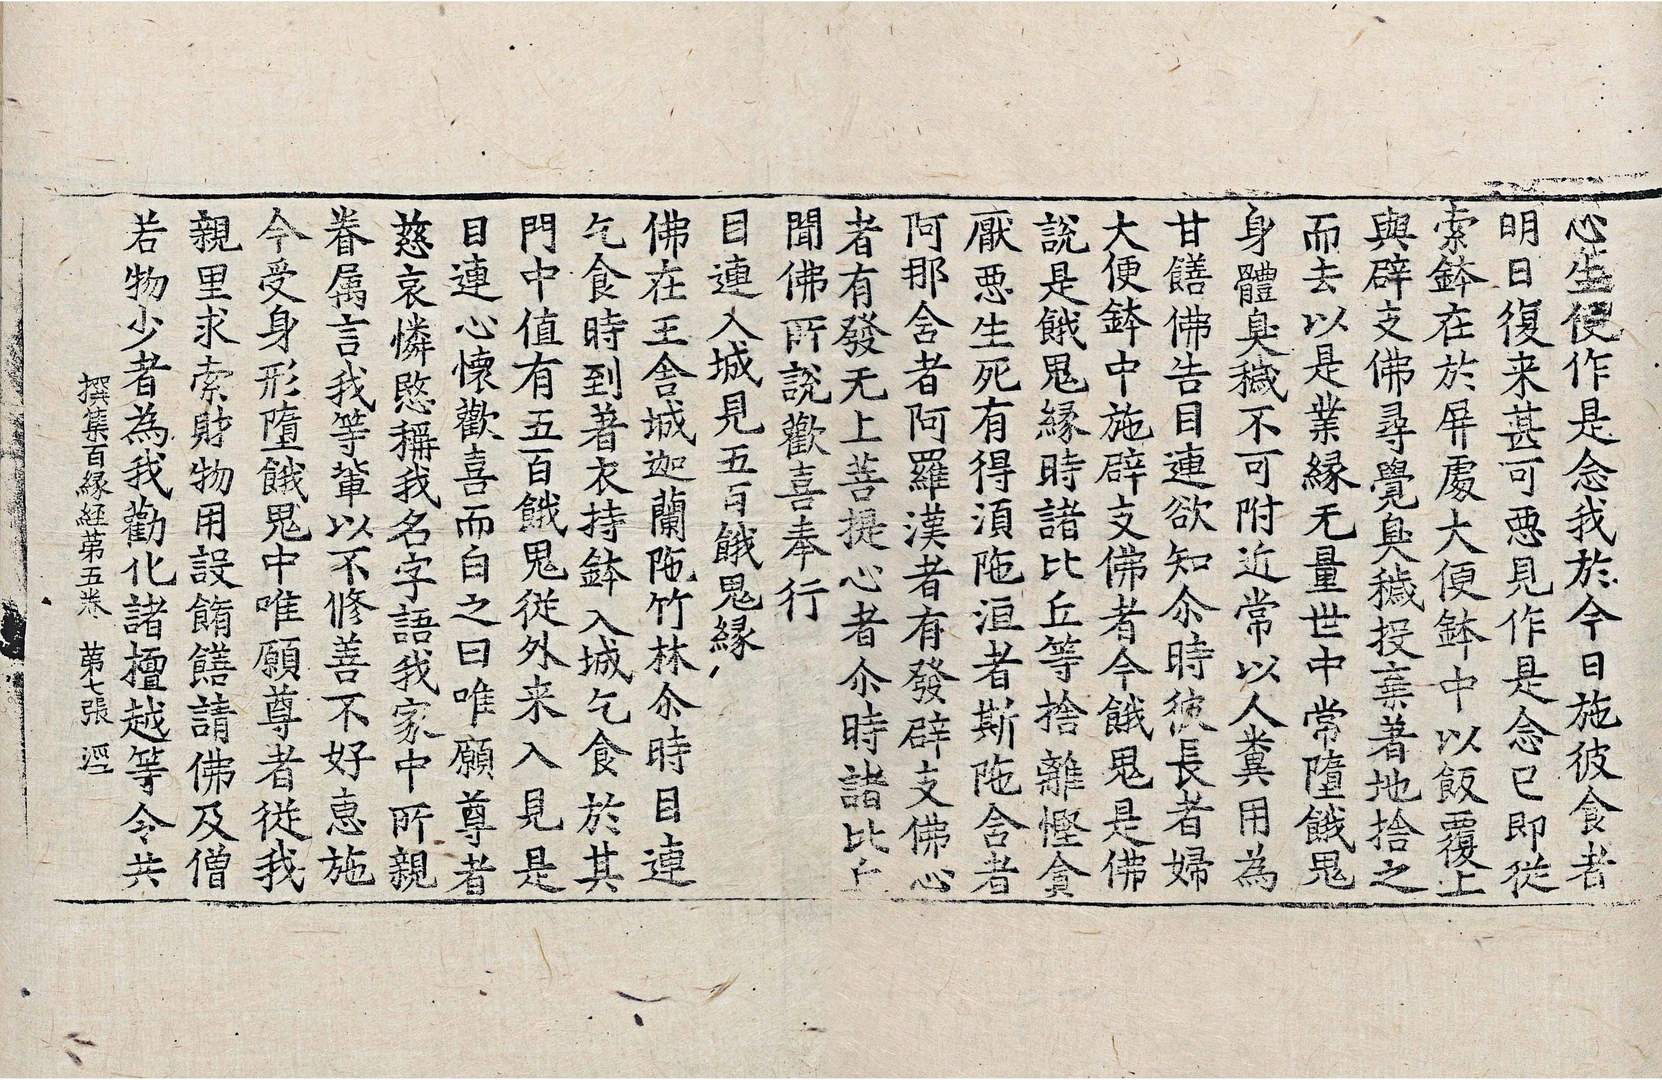 心生便作是念我於今日施彼食者
明日復来甚可惡見作是念已即從
索鉢在於屏處大便鉢中以飯覆上
與辟支佛尋覺臭穢投棄著地捨之
而去以是業緣无量世中常墮餓鬼
身體臭穢不可附近常以人糞用為
甘饍佛告目連欲知尒時彼長者婦
大便鉢中施辟支佛者今餓鬼是佛
說是餓鬼緣時諸比丘等捨離慳貪
厭惡生死有得湏陁洹者斯陁含者
阿那含者阿羅漢者有發辟支佛心
者有發无上菩提心者尒時諸比丘
聞佛所說歡喜奉行
目連入城見五百餓鬼緣
佛在王舍城迦蘭陁竹林尒時目連
乞食時到著衣持鉢入城乞食於其
門中值有五百餓鬼從外来入見是
目連心懷歡喜而白之曰唯願尊者
慈哀憐愍稱我名字語我家中所親
眷属言我等輩以不修善不好惠施
今受身形墮餓鬼中唯願尊者從我
親里求索財物用設餚饍請佛及僧
若物少者為我勸化諸檀越等令共
撰集百緣経第五卷 第七張 淫